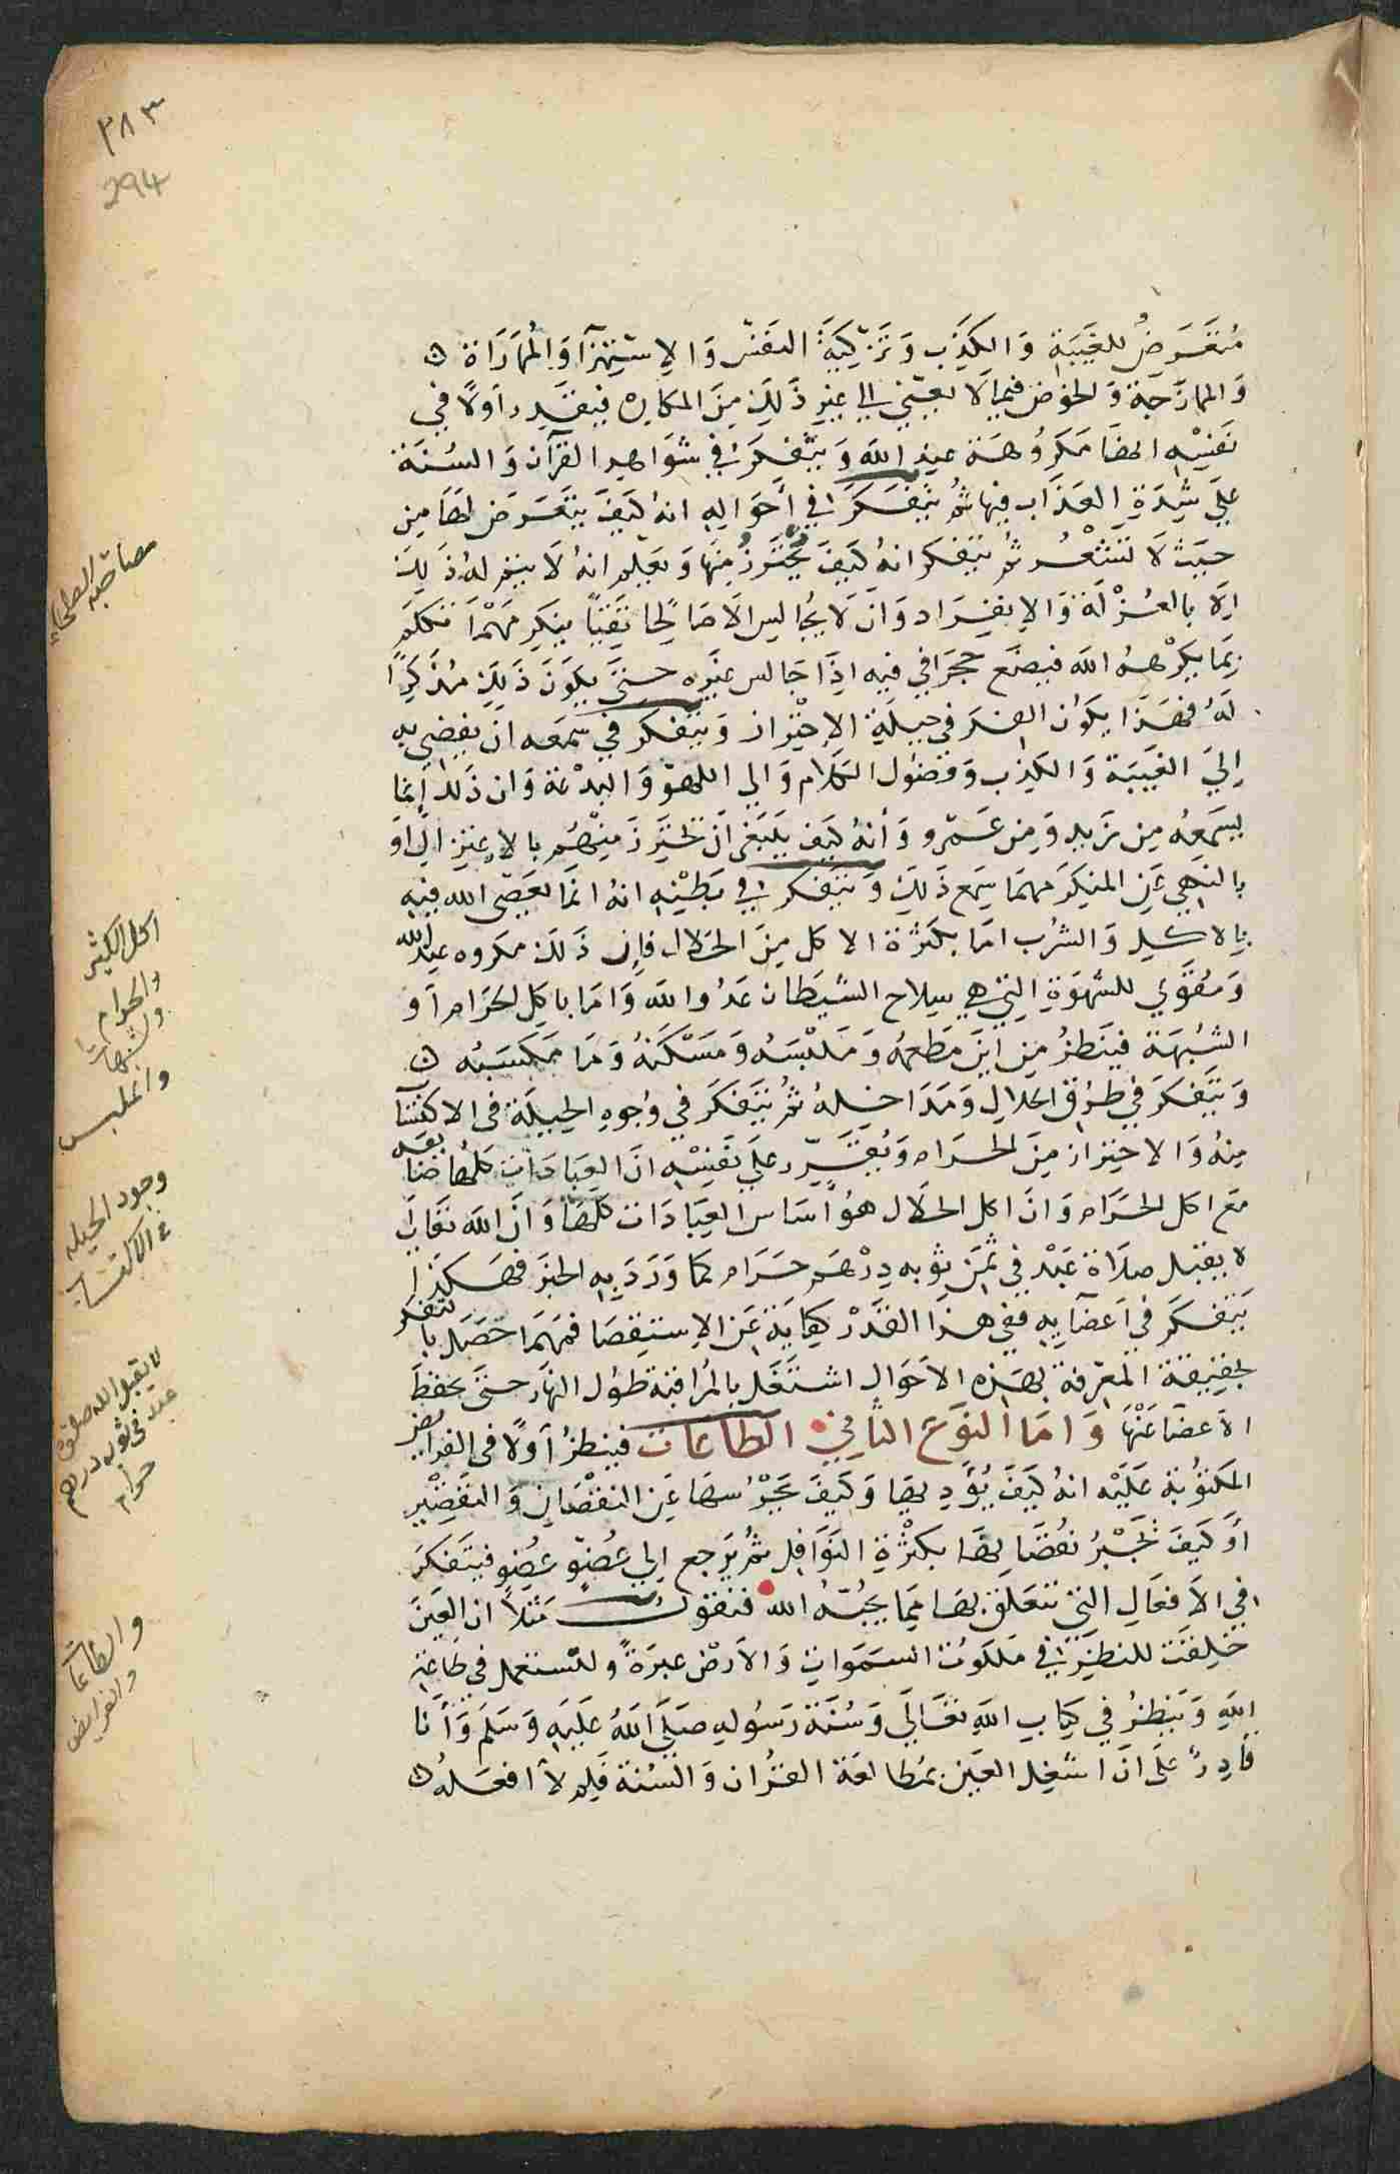 ٣٨٣
294
مُتَعَرِضٌ للغَيبَةِ وَالكَذِبِ وَتَزْكِيَةَ النَفسْ وَالإستِهزآ وَالمُمارَاة
وَالممازَحَة وَالخَوض فيمَا لَا يَعْني الى غيرِ ذَلِكَ مِنَ المكاره فيُقَرِر أولًا في
نَفسِهِ انها مَكرُوهَة عِند الله وَيتَفكر في شَوَاهِد القُرآن وَالسُنَة
عَلَى شِدَةِ العَذَاب فيها ثُمَ يَتَفَكَرَ في أَحْوَالِهِ انهُ كَيفَ يَتَعَرَض لهَا مِن
حَيث لَا يَشْعُر ثُم يتفكر انهُ كَيفَ يَحْتَرِزُ مِنهَا وَيَعْلَم انهُ لَا يتم لهُ ذَلِكَ
إلَا بالعُزْلَة وَالإنفِرَاد وَان لَا يُجالِس الَا صَالحًا تَقيًا يُنكِر مَهْمَا تَكَلم
بِمَا يَكرْهُهُ الله فيَضَع حَجَرًا في فيه اذَا جَالس غَيره حتى يكوَنَ ذَلِكَ مُذَكِرًا
لَهُ فهَذَا يكوُن الفِكر في حِيلَةِ الإحْتِرَاز وَيَتَفكر في سَمعه ان يفضي به
إلَى الغَيبَة وَالكَذِب وَفضُول الكلام وَالى اللهوّ وَالبدْعَة وَان ذَلك إنما
يسمَعهُ مِن زَيدٍ وَمِن عَمرو وَأنهُ كَيف يَنبَغي أن يَحترِز مِنهُم بالإعتزال او
بالنهي عَن المنكَر مهما سَمع ذَلِكَ وَيَتَفكر في بَطْنِهِ انهُ انمَا يَعصي الله فيهِ
بالاكلِ وَالشُرب امَا بكَثرَة الاكل مِنَ الحَلال فإن ذَلك مكروه عند الله
وَمُقَوّي للشهوَةِ التي هي سِلاح الشيطَان عَدُو الله وَامَا باكل الحَرَام اَو
الشُبهَة فيَنظُرُ مِن اَينَ مَطعمهُ وَمَلبَسَهُ وَمَسْكَنَهُ وَمَا مَكسَبُه
وَيَتَفَكر في طرُق الحَلالِ وَمَدَاخِلهُ ثُمَ يتَفكر في وُجوهِ الحيلَة في الاكتسَاب
مِنهُ وَالاحتِراز مِنَ الحرَام وَيُقَرِر عَلى نَفسِهِ انَ العِبَادَات كلهَا ضَائعَه
مَع اكل الحرَام وَانَ اكل الحلال هُو أساس العِبَادَات كلهَا وَانَ الله تعَالى
لا يقبل صَلاة عَبْد في ثَمَنِ ثوبه دِرْهَم حرَام كما وَرَدَ بِه الخبَر فهَكذا
يَتَفكَر في اعضآيه ففي هذا القَدْر كفايَة عَن الإستقصا فمهمَا حَصَل بالتفكر
لحقيقَة المعرفة بهَذِه الاَحْوَال اشتَغَل بالمُراقَبة طوُل النهَار حتى يحفظ
الاعضآ عَنْهَا وَامَا النَوَع الثَاني الطَاعَات فينظُرُ أولًا في الفرايض
المَكتوُبَة عَلَيه انهُ كَيفَ يُؤدِيهَا وَكيفَ يَحرُسهَا عَن النقْصَان وَالتَقصِير
أو كَيفَ يَجْبُر نُقصَانها بكَثْرَةِ النَوَافِل ثمُ يَرجع الى عُضوٍ عُضوٍ فيَتَفكر
في الاَفعَالِ التي تتَعلق بها مِمَا يُحبُهُ الله فَيَقوُل مَثلًا ان العَينَ
خُلِقَت للنَظِر في مَلكوُت السَموَات وَالاَرْض عِبرَةً ولتُستعمل في طَاعَة
الله وَيَنظُرُ في كِتابِ الله تعَالَى وَسُنَة رَسُوله صَلَى اللهُ عَلَيهِ وَسَلمَ وَأنَا
قَادِرٌ عَلَى انَ اشغِلَ العَين بمُطالَعَة القُرآن وَالسُنة فَلِمَ لا افعَلهُ
مصاحبة الصلحاء
اكل الكثير
والحرام
والشبهات
والملبس
وجود الحيله
فى الاكتساب
لا يقبل الله صلاة
عبد فى ثوبه درهم
حرام
والطاعات
والفرايض